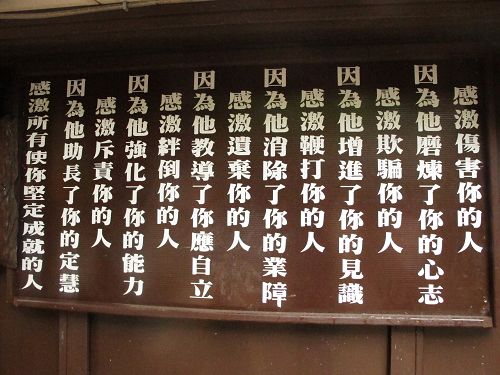 感激傷害你的人
因為他磨煉了你的心志
感激欺騙你的人
因為他增進了你的見識
感激鞭打你的人
因為他消除了你的業障
感激遺棄你的人
因為他教導了你應自立
感激絆倒你的人
因為他強化了你的能力
感激斥責你的人
因為他助長了你的定慧
感激所有使你堅定成就的人